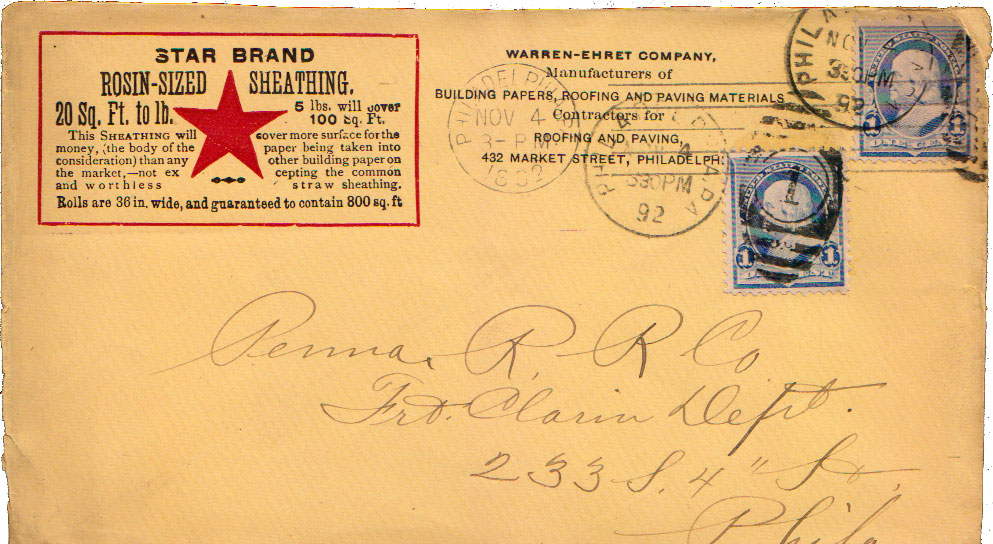 STAR BRAND
ROSIN-SIZED SHEATHING.
20 Sq. Ft. to lb.
5 lbs. will cover
100 Sq. Ft.
This SHEATHING will cover more surface for the
money, (the body of the paper being taken into
consideration) than any other building paper on
the market,—not ex cepting the common
and worthless straw sheathing.
Rolls are 36 in. wide, and guaranteed to contain 800 sq. ft
WARREN-EHRET COMPANY,
Manufacturers of
BUILDING PAPERS, ROOFING AND PAVING MATERIALS
Contractors for
ROOFING AND PAVING,
432 MARKET STREET, PHILADELPH
NOV 4
3-PM
330PM
92
PHILA
NOV
330PM
92
ONE CENT
1 1
Penna. R. R Co
Frt. Claim Dept.
233 S. 4" St.
Phila